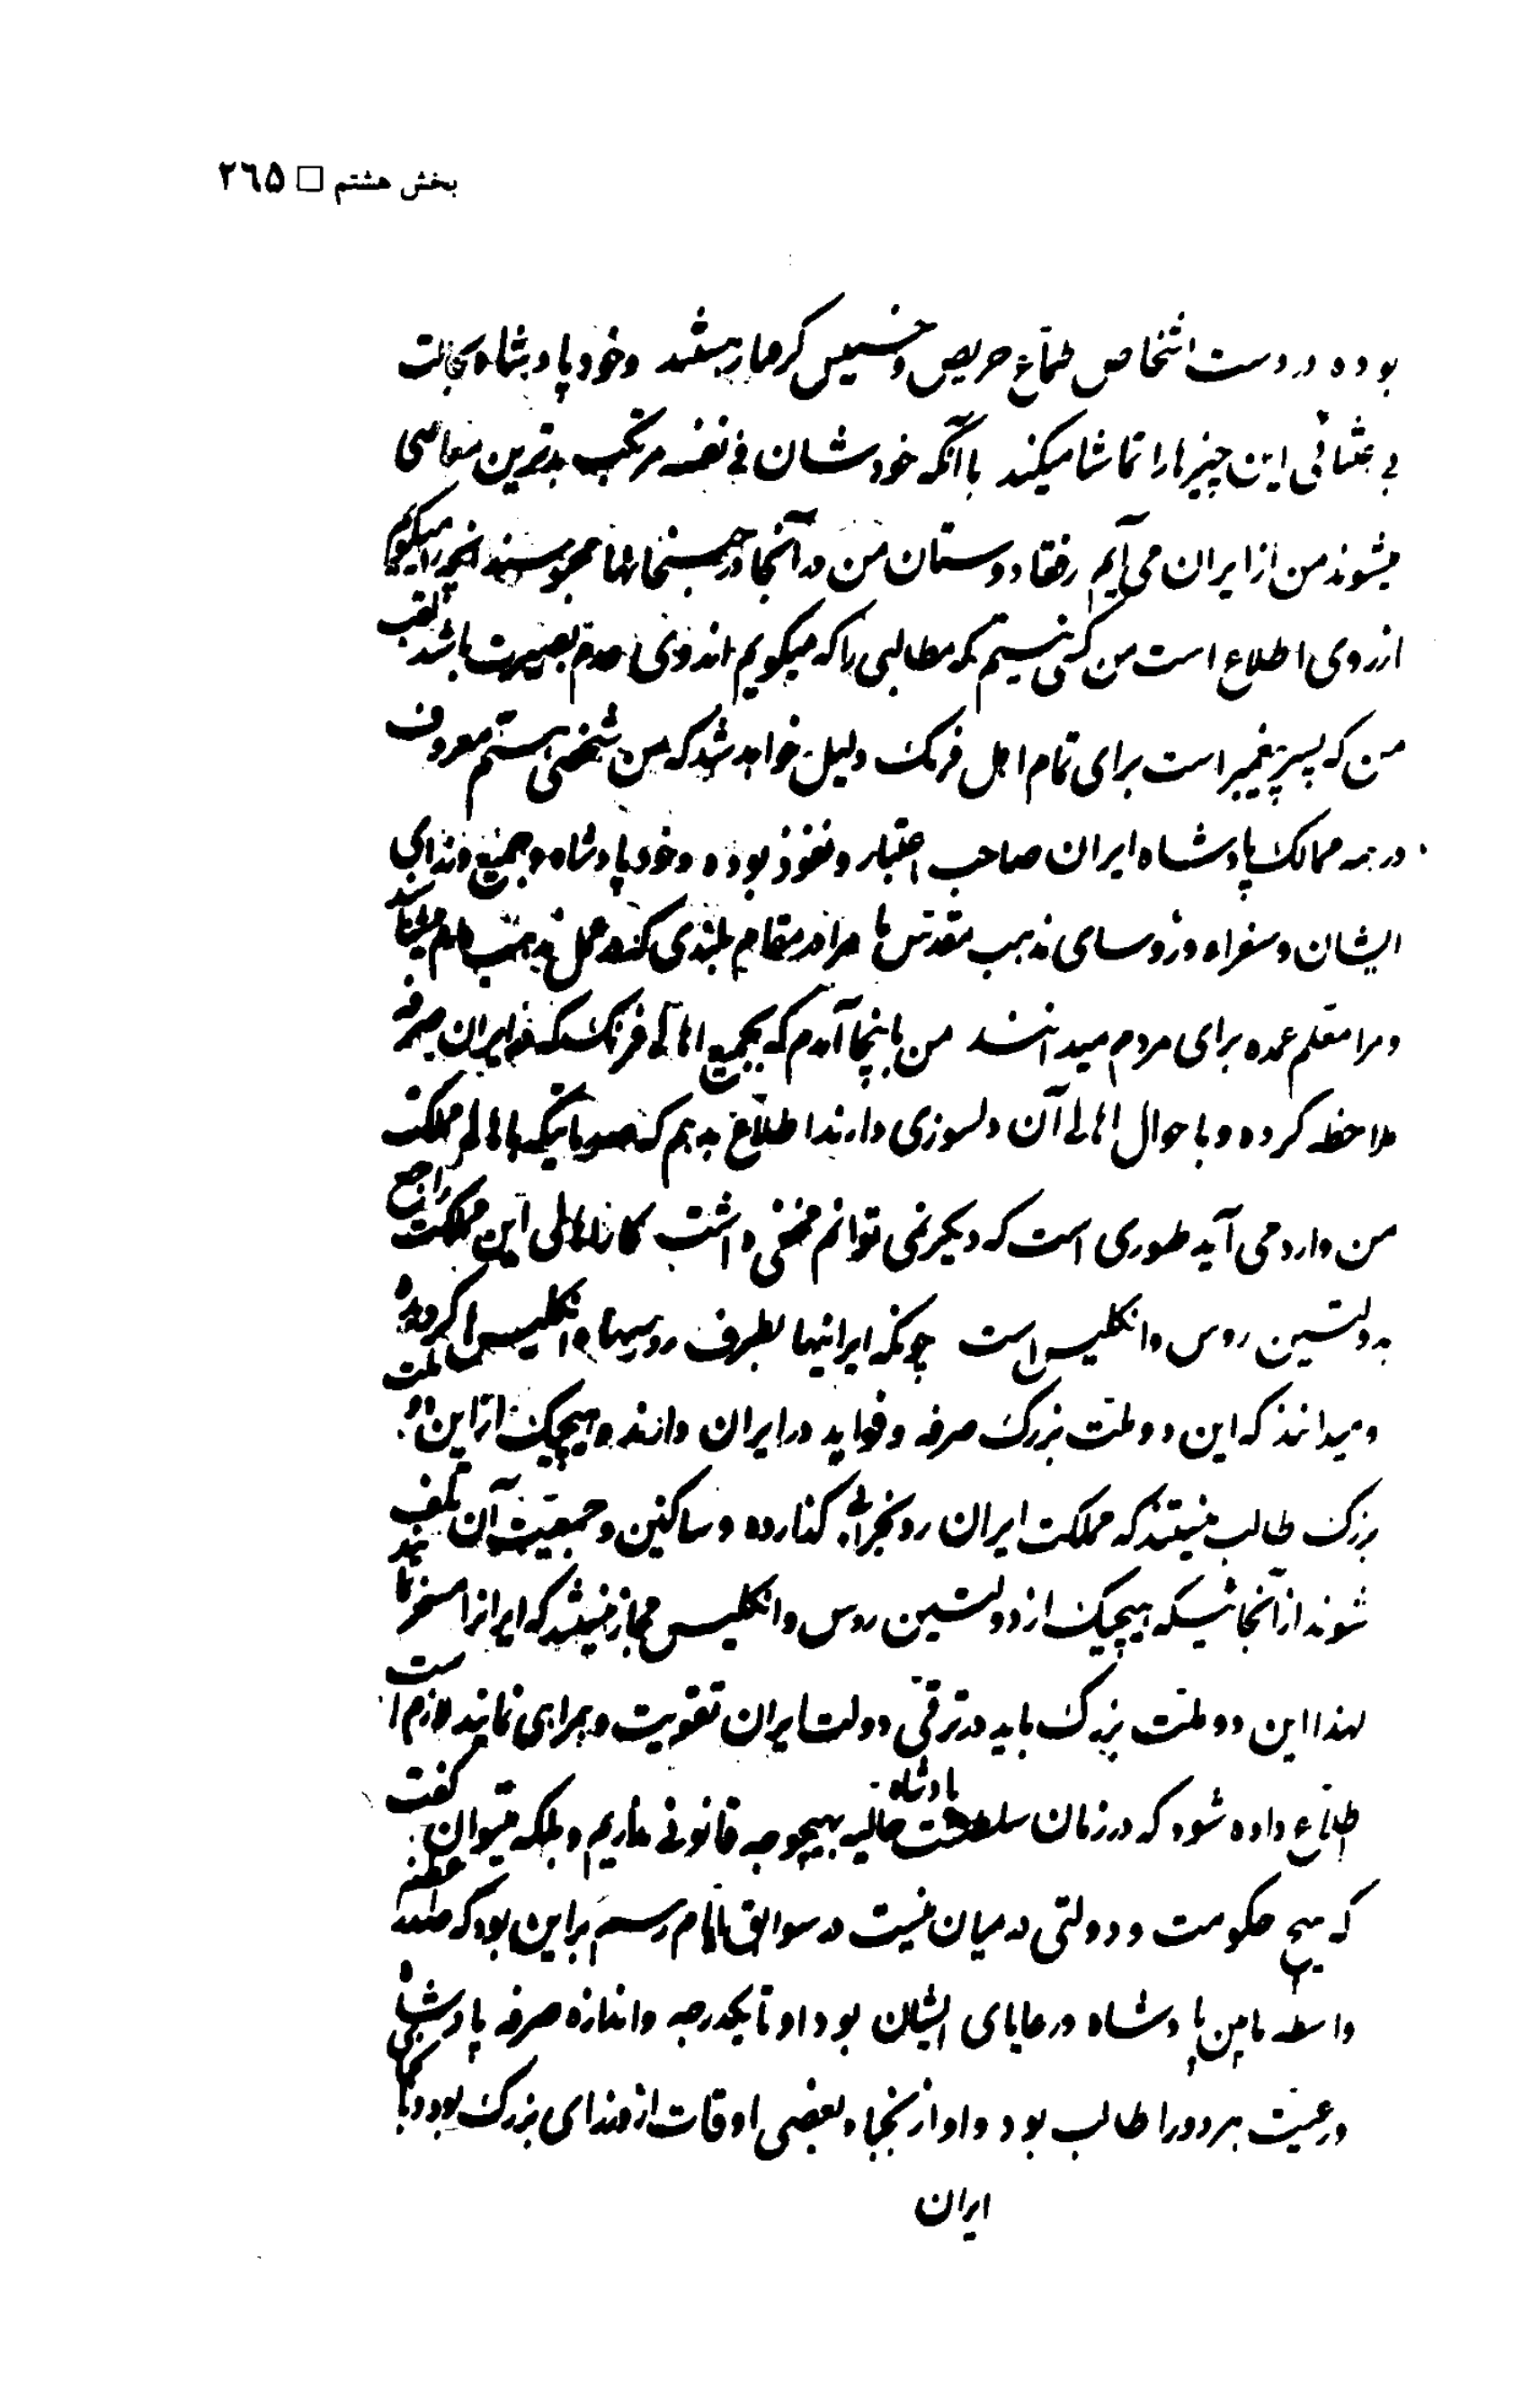 بخش هشتم □ ٢٦٥
بوده در دست اشخاص طماع حریص و خسیس گرفتار هستند و خود پادشاه بحالت
بی اعتنائی این چیزها را تماشا میکند با آنکه خودشان فی نفسه مرتکب بدترین معاصی
میشوند من از ایران می آیم رفقا و دوستان من در آنجا در حبسخانها محبوسند آنچه را میگویم
از روی اطلاع است من کسی نیستم که مطالبی را که میگویم از روی عدم بصیرت باشد لقب
من که پسر پیغمبر است برای تمام اهل فرنگ دلیل خواهد شد که من شخصی هستم معروف
در همه ممالک پادشاه ایران صاحب اعتبار و نفوذ بوده و خود پادشاه و جمیع وزدای
ایشان و سفراء و رؤسای مذهب مقدس ما مرا در مقام بلندی که در عمل مذهب دارم میشناسند
و مرا معلم عمده برای مردم میدانند من باینجا آمدم که بجمیع اهالی فرنگ که در ایران صرفه
ملاحظه کرده و باحوال اهالی آن دلسوزی دارند اطلاع بدهم که صدماتیکه باهالی مملکت
من وارد می آید طوری است که دیگر نمی توانم مخفی داشت کارهای این مملکت راجع
بدولتین روس و انگلیس است چونکه ایرانیها بطرف روسها و انگلیسها گرویده
و میدانند که این دو ملت بزرگ صرفه و فواید در ایران دارند و هیچیک از این دو ملت
بزرگ طالب نیستند که مملکت ایران رو بخرابی گذارده و ساکنین و جمعیت آن تلف
شوند از آنجائیکه هیچیک از دولتین روس و انگلیس مجاز نیستند که ایران را مسخر نمایند
لهذا این دو ملت بزرگ باید در ترقی دولت ایران تقویت و همراهی نمایند لازم است
اطلاع داده شود که در زمان سلطنت پادشاه حالیه بهیچوجه قانونی نداریم و بلکه میتوان گفت
که هیچ حکومت و دولتی در میان نیست در سوابق ایام رسم بر این بود که صدر اعظم
واسطه مابین پادشاه و رعایای ایشان بود او تا یکدرجه و اندازه صرفه پادشاه
و رعیت هر دو را طالب بود و او از نجبا و بعضی اوقات از وزدای بزرگ بود
ایران